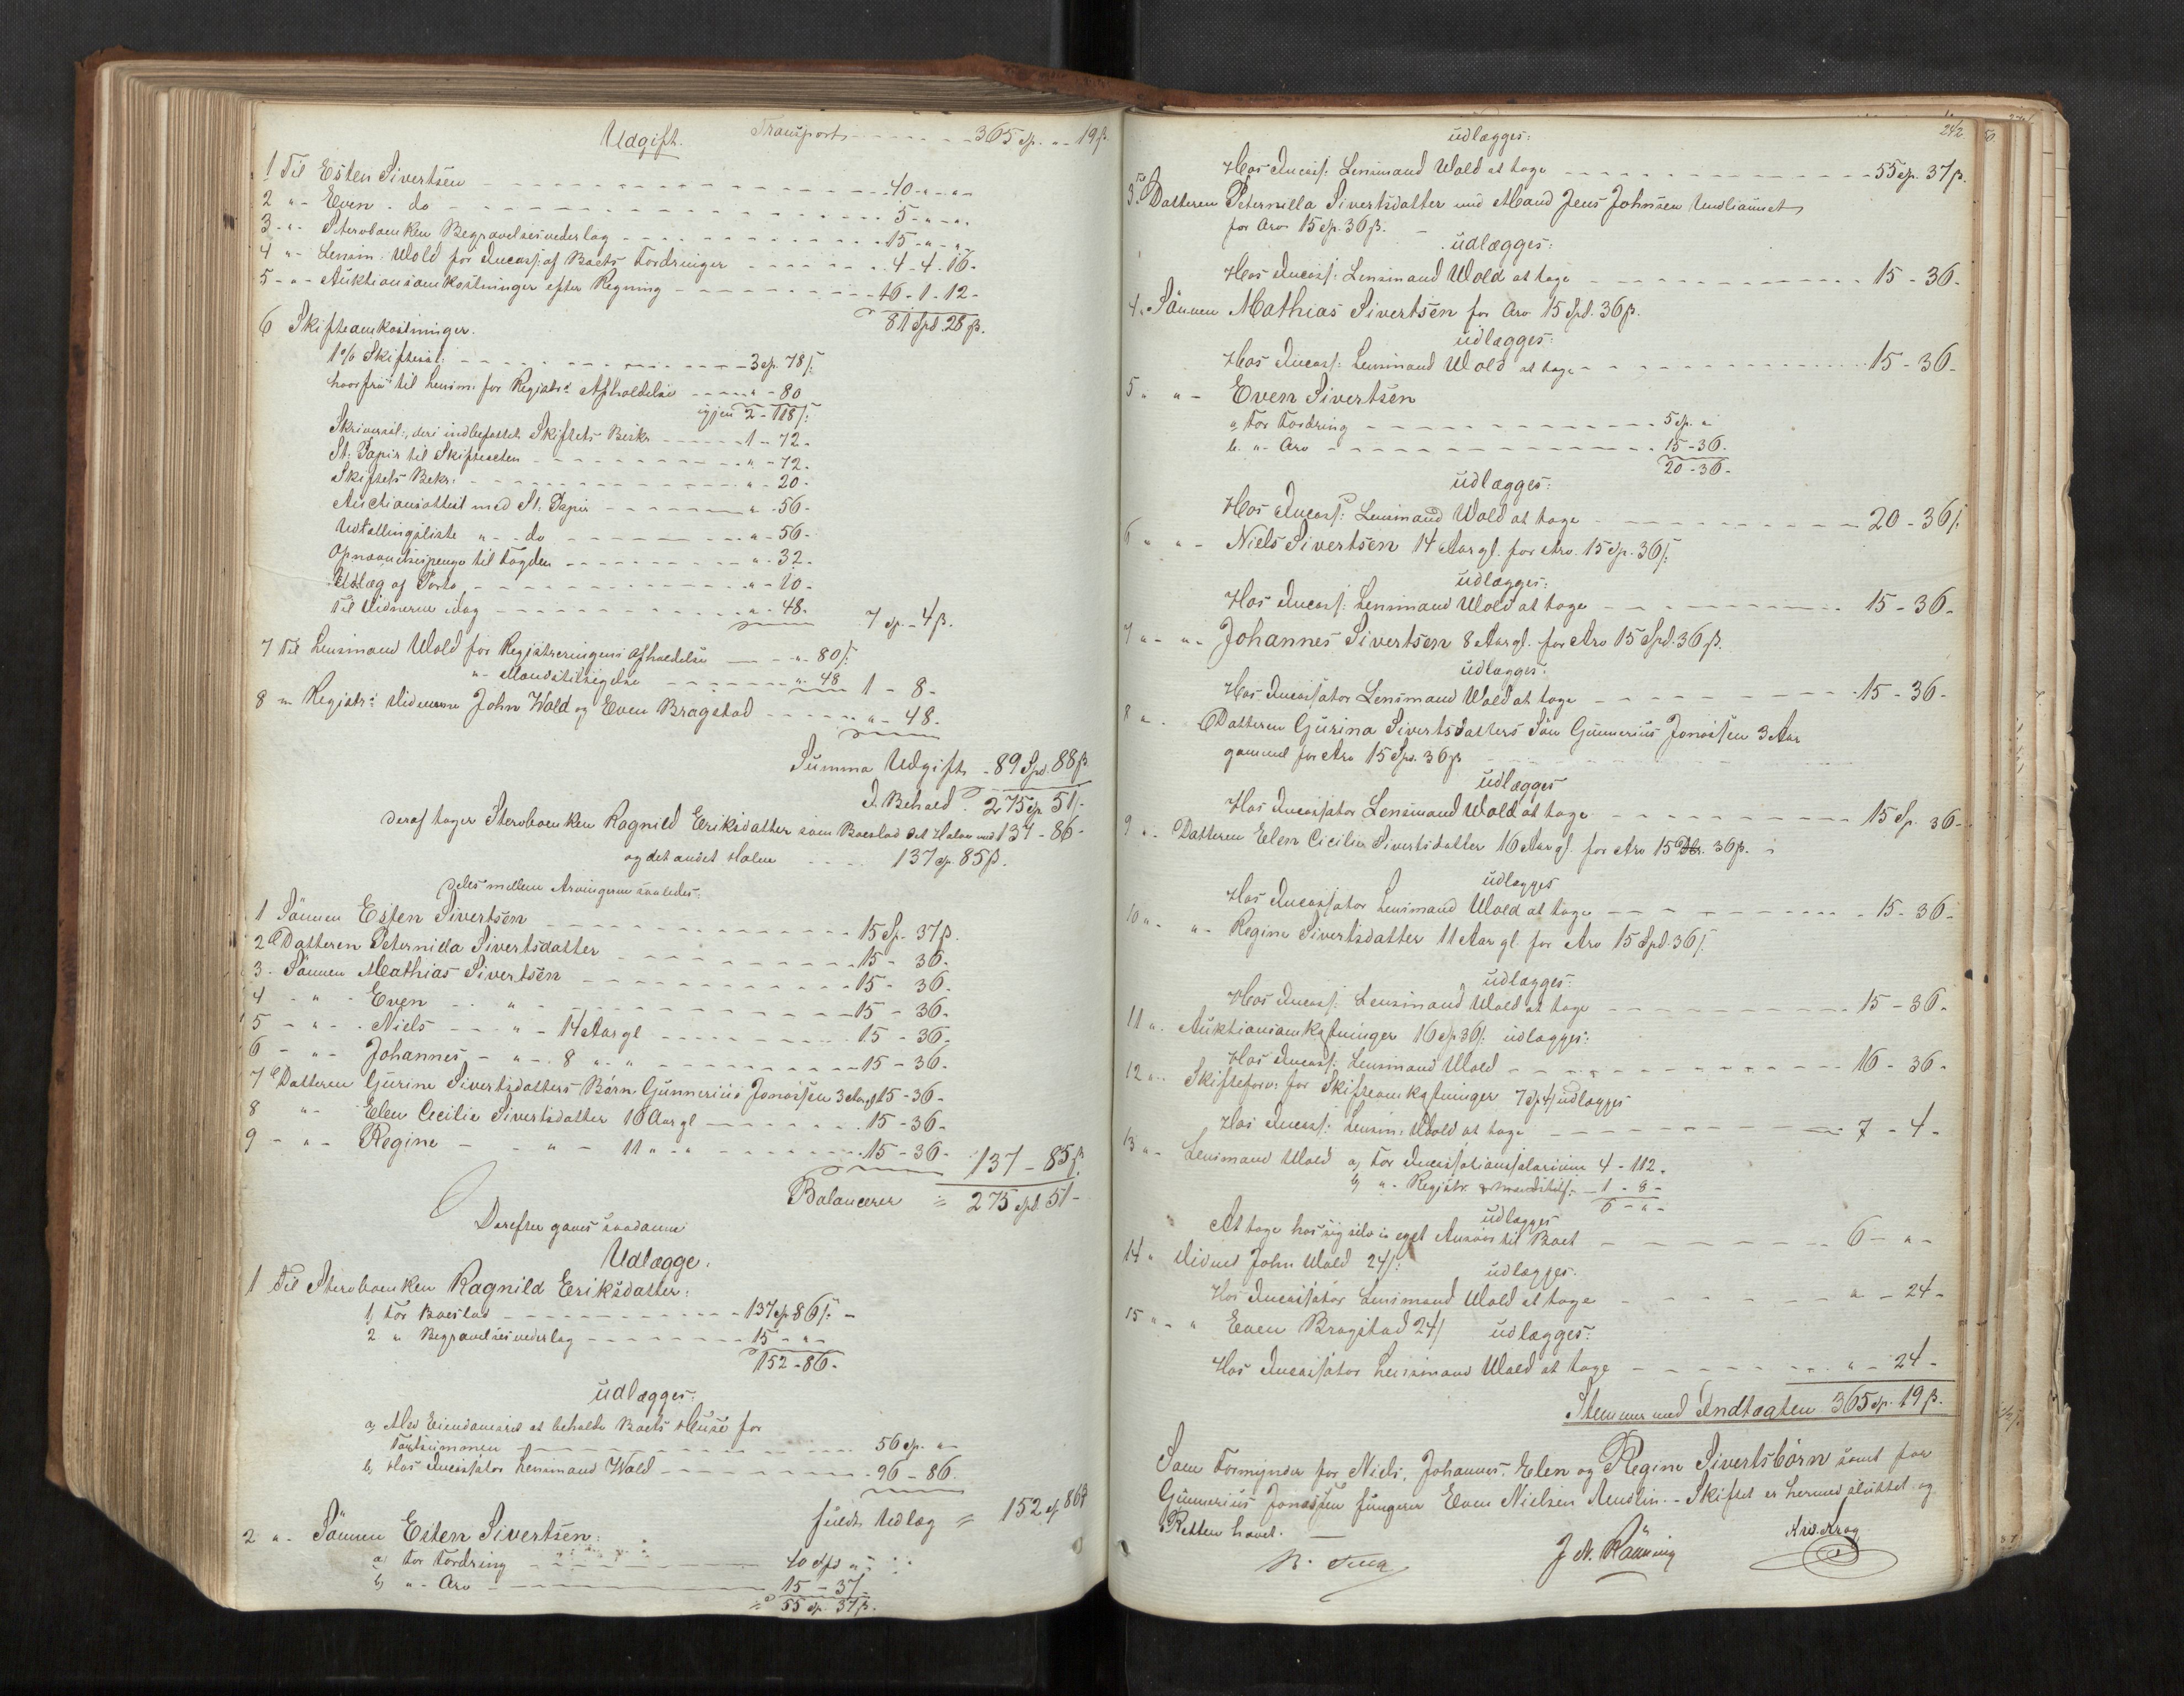 Transport - - - - 365 sp. " - 19 β.
Udgift.
1 Til Esten Sivertsen - - - 40 - " - " -
2 " - Even - do - - - 5 - " - "
3 - " - Stervboenken Begravelsesvederlag - - - 15 - " - " -
4 " - Lensm: Wold for Incass: af Boets Fordringer - - - 4 - 4 - 16 -
5 - " - Auktionsomkostninger efter Regning - - - 46 - 1 - 12 -
81 Spd 28 β.
6 Skifteomkostninger.
1% Skiftesal: - - - 3 sp. 78 β
hvorfra til Lensm: for Registr: Afholdelse - - - " - 80
igjen 2 - 118 β
Skriversal:, deri indbefattet Skiftets Beskr. - - - 1 - 72 -
St: Papir til Skifteacten - - - " - 72 -
Skiftets Bekr: - - - " - 20 -
Auctionsattest med St: Papir - - - " - 56 -
Udtællingsliste " - do - - - " - 56 -
Opnævnelsespenge til Fogden - - - " - 32 -
Udlæg af Porto - - - " - 10 -
Til Vidnerne idag - - - " - 48 - 7 sp. - 4 β.
7 Til Lensmand Wold for Registreringens Afholdelse - - " - 80 β
" - Mandstilsigelse - - - " - 48 1 - 8 -
8 " - Registr: Vidnerne John Wold og Even Bragstad - - - " - 48 -
Summa Udgift - 89 Spd. 88 β
I Behold 275 sp 51 β
Deraf tager Stervboenken Ragnild Eriksdatter som Boeslod det Halve med 137 - 86 -
og det andet Halve - - - 137 sp. 85 β.
deles mellem Arvingerne saaledes:
1 Sönnen Esten Sivertsen - - - 15 Sp. 37 β.
2 Datteren Peternilla Sivertsdatter - - - 15 - 36 -
3 - Sönnen Mathias Sivertsen - - - 15 - 36 -
4 - " - Even - - " - - - - 15 - 36 -
5 - " - Niels - - " - 14 Aar gl - - - 15 - 36 -
6 - " - Johannes - " - 8 " - " - - - 15 - 36 -
7 Datteren Gurine Sivertsdatters Börn Gunnerius Jonassen 3 Aar gl 15 - 36 -
8 " - Elen Cecilie Sivertsdatter 16 Aar gl - - - 15 - 36 -
9 - " - Regine - - " - 11 " - " - - - 15 - 36 - 137 - 85 β.
Balancerer = 275 spd. 51 -
Derefter gaves saadanne
Udlægge:
1 Til Stervboenken Ragnild Eriksdatter:
1, For Boeslod - - - 137 sp 86 β -
2 " Begravelsesvederlag - - - 15 - " -
152 - 86 -
udlægges:
a, Med Eiendomsret at beholde Boets Huse for
Taxtsummen - - - 56 sp. " -
b, Hos Incassator Lensmand Wold - - - 96 - 86 -
fuldt Udlæg = 152 sp 86 β
2 " - Sönnen Esten Sivertsen:
a, For Fordring - - - 40 Spd " -
b, " - Arv - - - 15 - 37
= 55 sp. 37 β.
242
udlægges:
Hos Incass: Lensmand Wold at tage - - - 55 sp. 37 β.
3. Datteren Peternilla Sivertsdatter med Mand Jens Johnsen
for Arv 15 sp. 36 β. -
udlægges:
Hos Incass: Lensmand Wold at tage - - - 15 - 36 -
4. Sönnen Mathias Sivertsen for Arv 15 Spd. 36 β.
udlægges:
Hos Incass: Lensmand Wold at tage - - - 15 - 36 -
5 " " - Even Sivertsen
a, For Fordring - - - 5 sp. "
b. " - Arv - - - 15 - 36 -
20 - 36 -
udlægges:
Hos Incass: Lensmand Wold at tage - - - 20 - 36 β
6 " " - Niels Sivertsen 14 Aar gl. for Arv 15 sp. 36 β
udlægges:
Hos Incass: Lensmand Wold at tage - - - 15 - 36 -
7 " - " - Johannes Sivertsen 8 Aar gl. for Arv 15 Spd. 36 β.
udlægges:
Hos Incassator Lensmand Wold at tage - - - 15 - 36 -
8 " - Datteren Gurina Sivertsdatters Sön Gunnerius Jonassen 3 Aar
gammel for Arv 15 Spd. 36 β
udlægges
Hos Incassator Lensmand Wold at tage - - - 15 Sp. 36 -
9 " - Datteren Elen Cicilia Sivertsdatter 16 Aar gl. for Arv 15 36 β.
udlægges
Hos Incassator Lensmand Wold at tage - - - 15 - 36 -
10 " - " - Regine Sivertsdatter 11 Aar gl. for Arv 15 Spd. 36 β
udlægges:
Hos Incass: Lensmand Wold at tage - - - 15 - 36 -
11 " - Auktionsomkostninger 16 sp 36 β. udlægges:
Hos Incass: Lensmand Wold - - - 16 - 36 -
12 " - Skifteforv: for Skifteomkostninger 7 sp 4 β udlægges
Hos Incass: Lensm: Wold at tage - - - 7 - 4 -
13 " - Lensmand Wold a, For Incassationssalarium 4 - 112 -
b, " - Registr. & Mandstils: - 1 - 8 -
6 - " -
udlægges
At tage hos sig selv i eget Ansvar til Boet - - - 6 - " -
14 " Vidnet John Wold 24 β: udlægges:
Hos Incassator Lensmand Wold at tage - - - " - 24 -
15 " - " Even Bragstad 24 β udlægges:
Hos Incassator Lensmand Wold at tage - - - " - 24 -
Stemmer med Indtægten 365 sp. 19 β.
Som Formynder for Niels, Johannes, Elen og Regine Sivertsbörn samt for
Gunnerius Jonassen fungerer Even Nielsen - Skiftet er hermed sluttet og
Retten hævet. -
J. N. Rönning